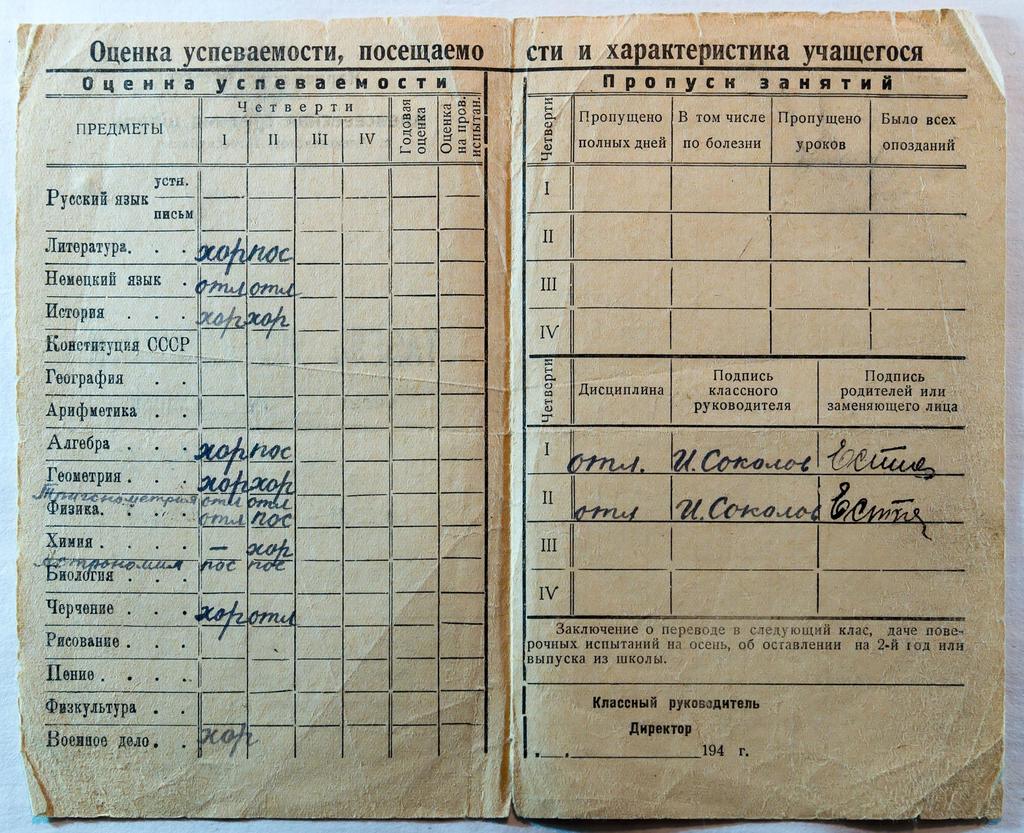 Оценка успеваемости, посещаемости и характеристика учащегося
Оценка успеваемости
ПРЕДМЕТЫ
Четверти
I II III IV
Годовая оценка
Оценка на пров. испытан.
Русский язык устн.
письм
Литература. . . хор пос
Немецкий язык . отл отл
История . . . хор хор
Конституция СССР
География . .
Арифметика . .
Алгебра . . . хор пос
Геометрия . . . хор хор
Тригонометрия отл отл
Физика. . . отл пос
Химия . . . . — хор
Астрономия пос пос
Биология . . .
Черчение . . . хор отл
Рисование . . .
Пение . . . .
Физкультура . .
Военное дело. . хор
Пропуск занятий
Четверти
Пропущено полных дней
В том числе по болезни
Пропущено уроков
Было всех опозданий
I
II
III
IV
Четверти
Дисциплина
Подпись классного руководителя
Подпись родителей или заменяющего лица
I отл. И. Соколов
II отл И. Соколов
III
IV
Заключение о переводе в следующий клас, даче пове-
рочных испытаний на осень, об оставлении на 2-й год или
выпуска из школы.
Классный руководитель
Директор
194 г.